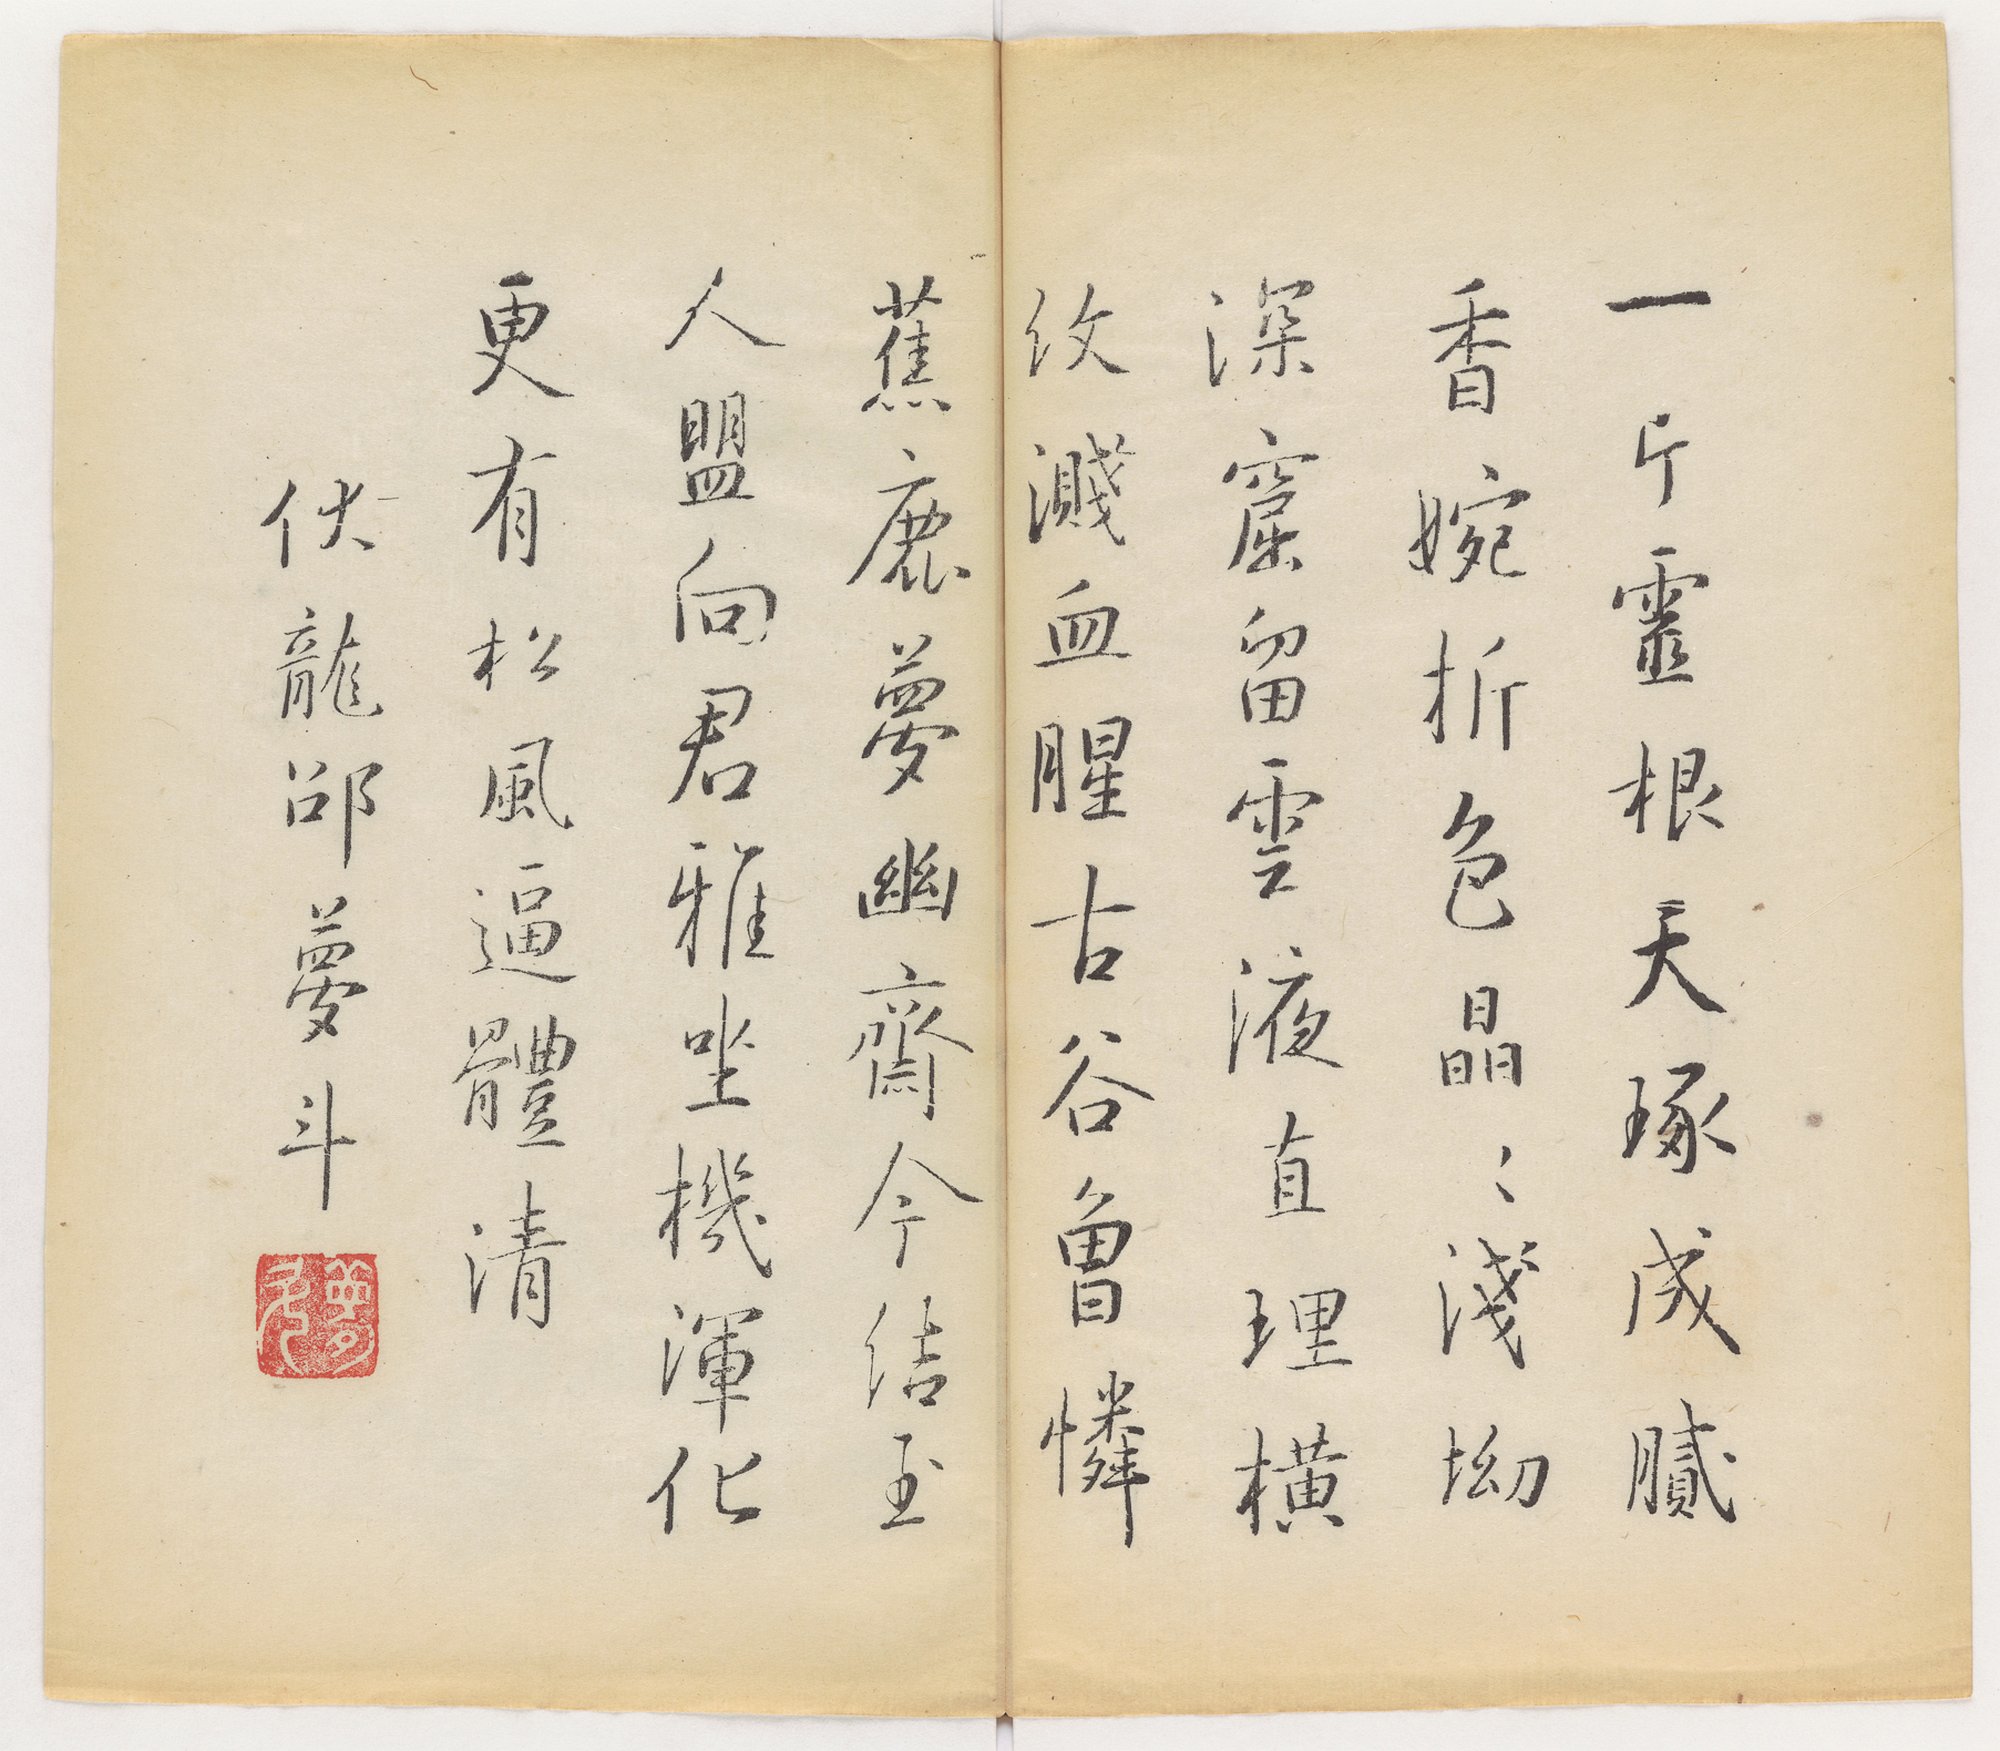 一片靈根天琢成膩
香婉折色晶〻淺坳
深窟留雲液直理橫
紋濺血腥古谷曾憐
蕉鹿夢幽齋今結玉
人盟向君雅坐機渾化
更有松風逼體清
伏龍邵夢斗
夢